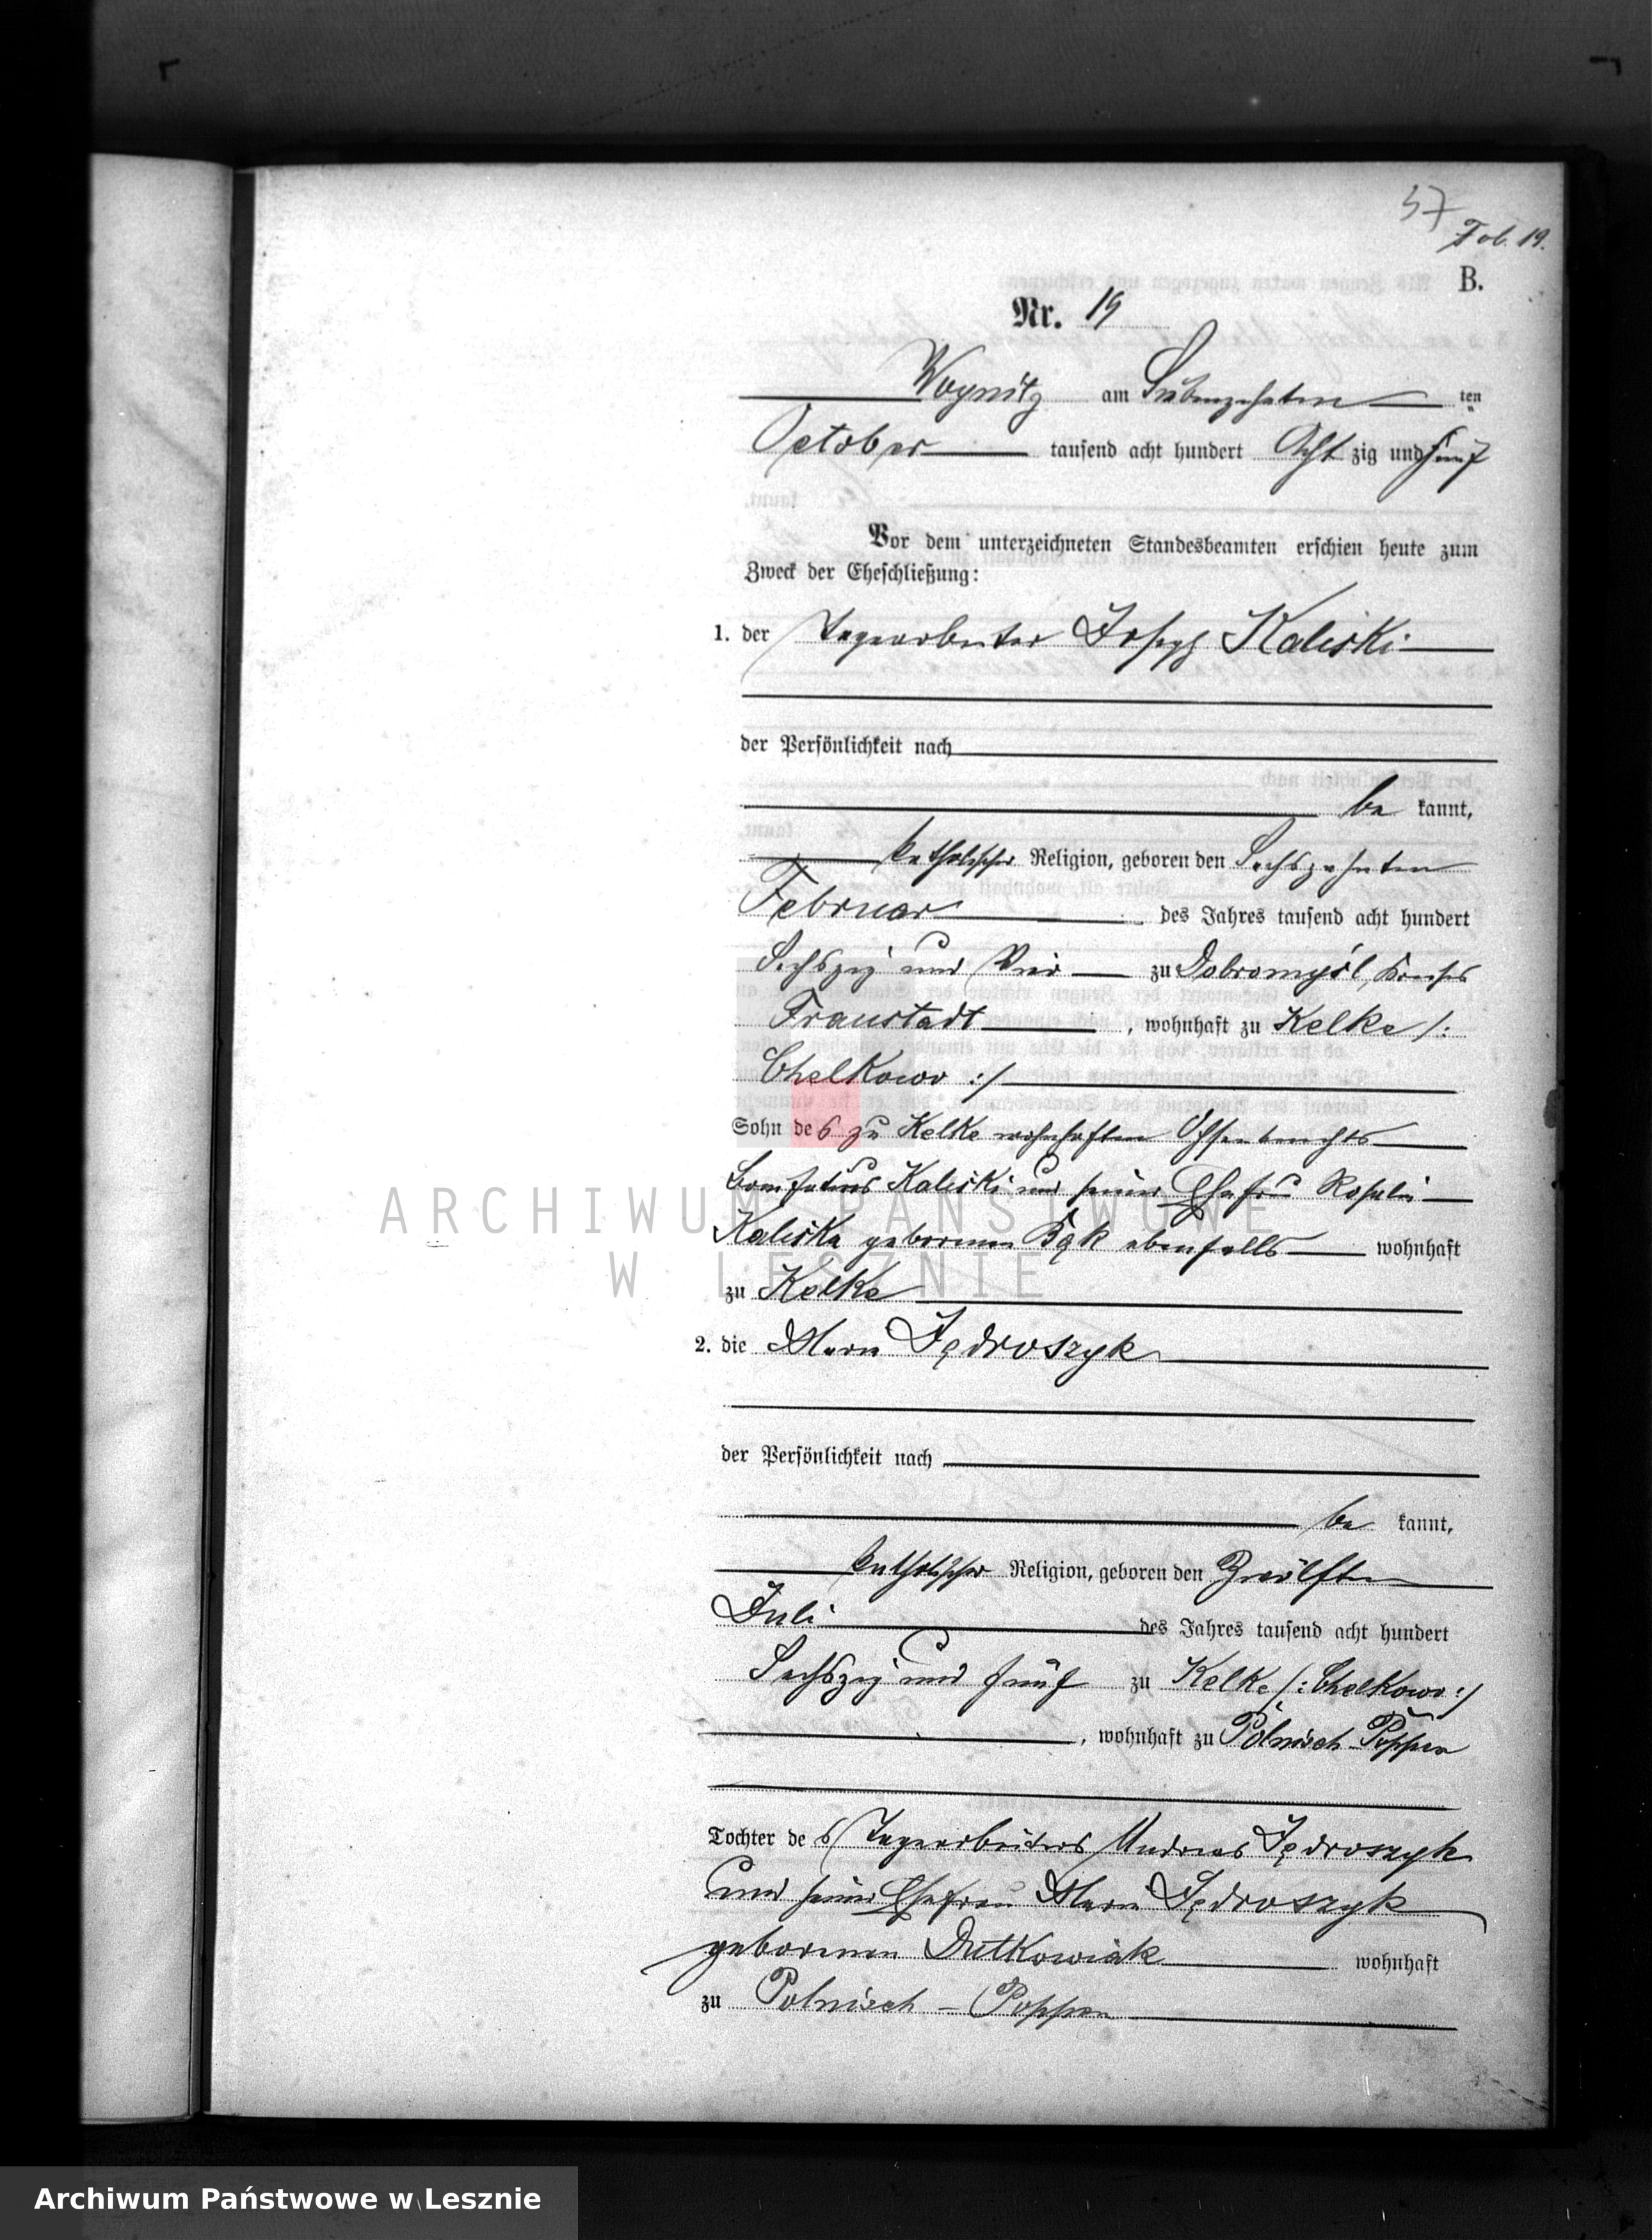 57
Fol. 19.
B.
Nr. 19
Woynitz am Siebenzehnten ten
October tausend acht hundert Acht zig und fünf
Vor dem unterzeichneten Standesbeamten erschien heute zum
Zweck der Eheschließung:
1. der Tagearbeiter Joseph Kaliski
der Persönlichkeit nach
be kannt,
katholischer Religion, geboren den Sechszehnten
Februar des Jahres tausend acht hundert
Sechszig und Vier zu Dobromyśl, Kreises
Fraustadt, wohnhaft zu Kelke /:
Chelkowo :/
Sohn des zu Kelke wohnhaften Ochsenknechts
Bonifatius Kaliski und seiner Ehefrau Rosalie
Kaliska geborenen Bąk ebenfalls wohnhaft
zu Kelke
2. die Marie Jędroszyk
der Persönlichkeit nach
be kannt,
katholischer Religion, geboren den Zwölften
Juli des Jahres tausend acht hundert
Sechszig und fünf zu Kelke /: Chelkowo :/
, wohnhaft zu Polnisch Poppen
Tochter des Tagearbeiters Andreas Jędroszyk
und seiner Ehefrau Marie Jędroszyk
geborenen Dutkowiak wohnhaft
zu Polnisch-Poppen
ARCHIWUM PAŃSTWOWE
W LESZNIE
Archiwum Państwowe w Lesznie